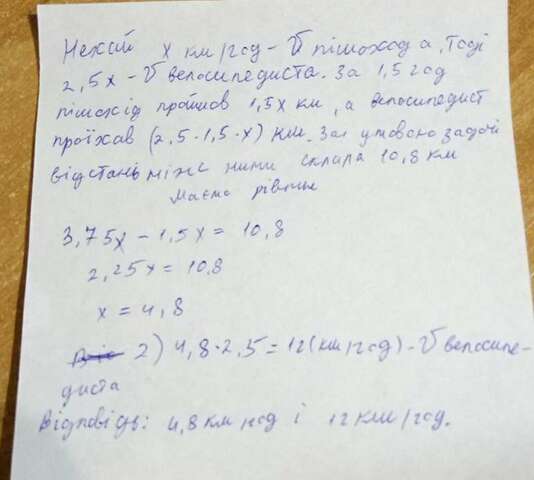 Нехай х км/год - V пішохода, тоді
2,5х - V велосипедиста. За 1,5 год
пішохід пройшов 1,5х км, а велосипедист
проїхав (2,5·1,5·х) км. За умовою задачі
відстань між ними склала 10,8 км
Маємо рівнян
3,75х - 1,5х = 10,8
2,25х = 10,8
х = 4,8
2) 4,8·2,5 = 12 (км/год) - V велосипе-
диста
Відповідь: 4,8 км/год і 12 км/год.